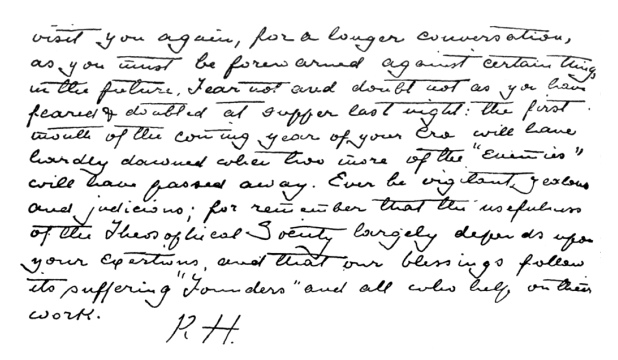 visit you again, for a longer conversation,
as you must be forewarned against certain things
in the future. Fear not and doubt not as you have
feared & doubted at supper last night: the first
month of the coming year of your Era will have
hardly dawned when two more of the "Enemies"
will have passed away. Ever be vigilant, zealous
and judicious; for remember that the usefulness
of the Theosophical Society largely depends upon
your exertions, and that our blessings follow
its suffering "Founders" and all who help on their
work.
K. H.